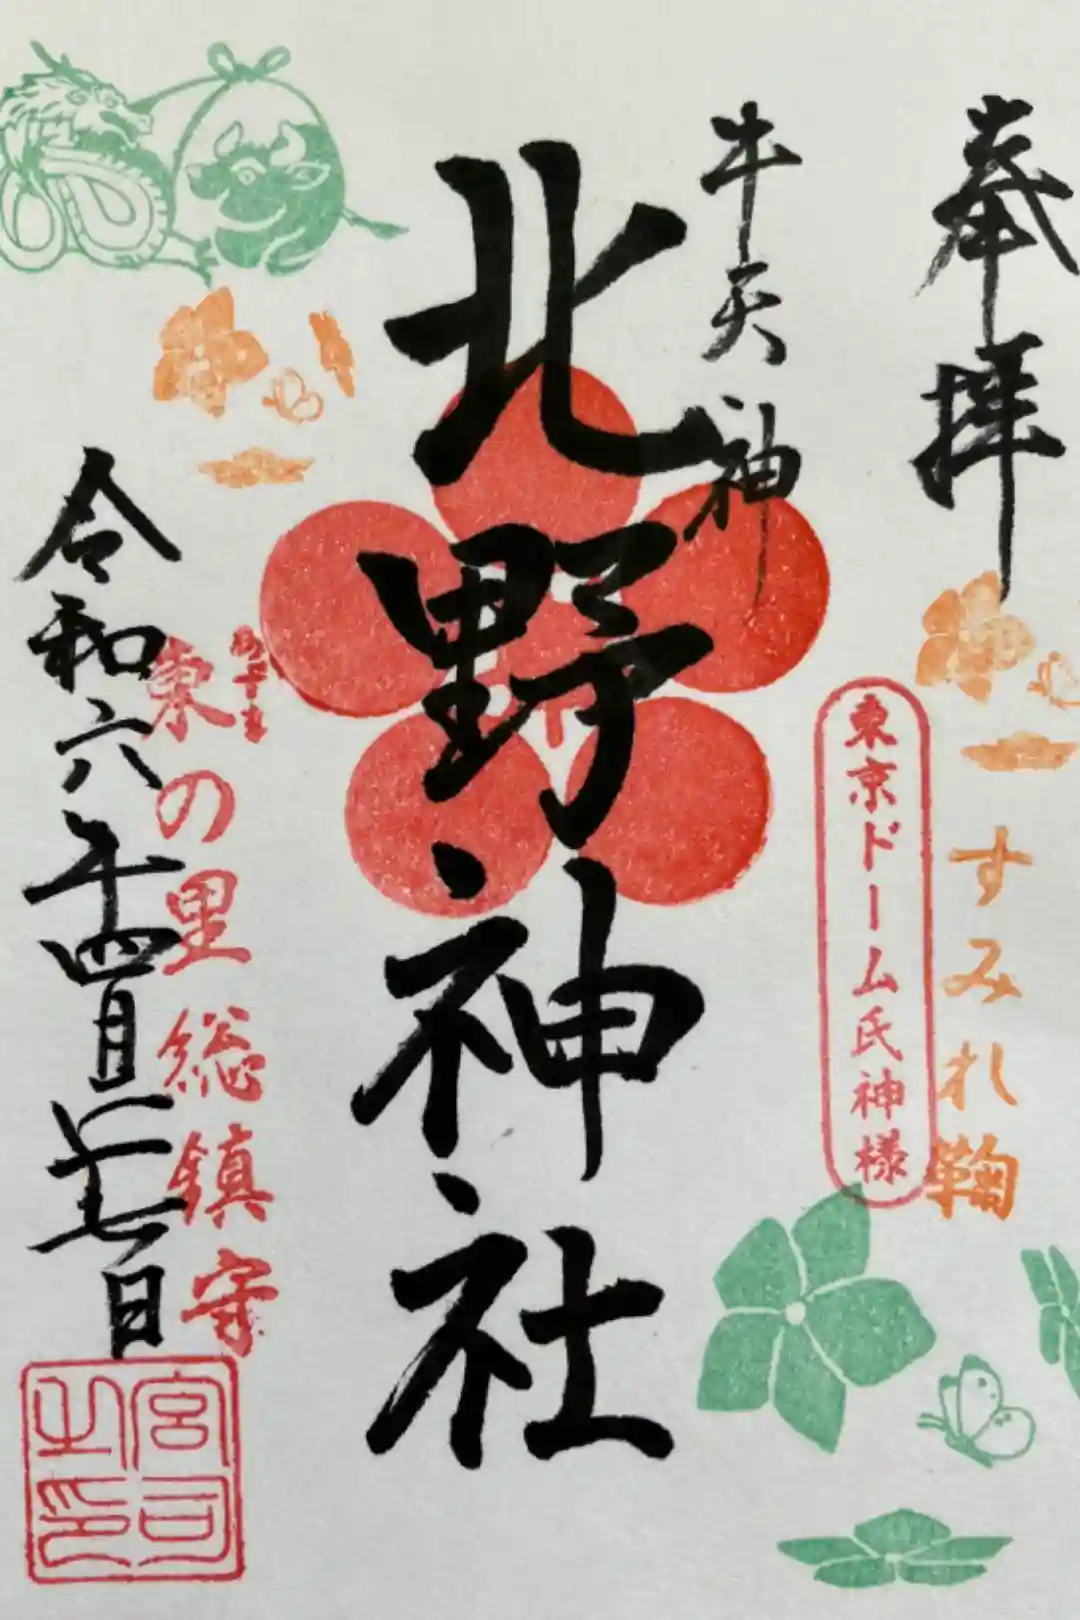 奉拝
すみれ鞠
東京ドーム氏神様
牛天神
北野神社
東の里総鎮守
令和六年四月廿七日
宮司之印